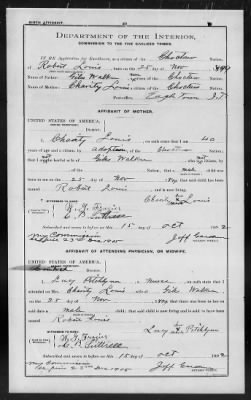 BIRTH AFFIDAVIT.
DEPARTMENT OF THE INTERIOR,
COMMISSION TO THE FIVE CIVILIZED TRIBES.
IN RE Application for Enrollment, as a citizen of the Choctaw Nation,
of Robert Louis, born on the 25 day of Nov
Name of Father: Giles Walker a citizen of the Choctaw Nation.
Name of Mother: Charity Louis a citizen of the Choctaw Nation.
Postoffice Eagle Town I.T.
AFFIDAVIT OF MOTHER.
UNITED STATES OF AMERICA,
District.
I, Charity Louis, on oath state that I am 40
years of age and a citizen by adoption, of the Choctaw Nation;
that I am not the lawful wife of Giles Walker, who is a citizen, by
of the Nation; that a male child was
born to me on the 25 day of Nov; that said child has been
named Robert Louis, and is now living.
Charity Louis
WITNESSES TO MARK:
W. J. Frazier
Subscribed and sworn to before me this 15 day of Oct 1902
My Commission
Expires 23rd Dec 1905
AFFIDAVIT OF ATTENDING PHYSICIAN, OR MIDWIFE.
UNITED STATES OF AMERICA,
District.
I, Lucy Pitchlynn, a nurse, on oath state that I attended on
Mrs. Charity Louis, wife of Giles Walker
on the 25 day of Nov; that there was born to her on
said date a male child; that said child is now living and is said to have been
named Robert Louis
Lucy Pitchlynn
WITNESSES TO MARK:
W. J. Frazier
Subscribed and sworn to before me this 15 day of Oct 1902
My Commission
Expires 23rd Dec 1905